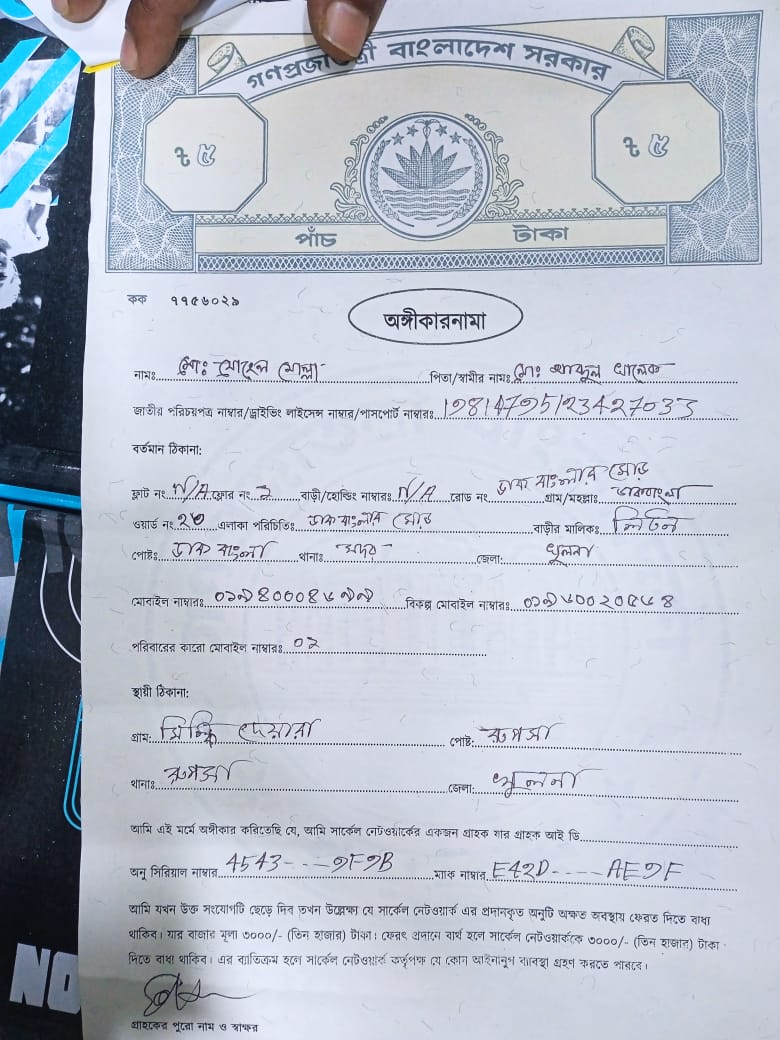 গণপ্রজাতন্ত্রী বাংলাদেশ সরকার
৳ ৫
৳ ৫
পাঁচ টাকা
কক ৭৭৫৬০২৯
অঙ্গীকারনামা
নামঃ মোঃ সোহেল মোল্লা পিতা/স্বামীর নামঃ মোঃ আব্দুল খালেক
জাতীয় পরিচয়পত্র নাম্বার/ড্রাইভিং লাইসেন্স নাম্বার/পাসপোর্ট নাম্বারঃ 19814795123427033
বর্তমান ঠিকানা:
ফ্লাট নং N/A ফ্লোর নং 2 বাড়ী/হোল্ডিং নাম্বারঃ N/A রোড নং ডাক বাংলার মোড় গ্রাম/মহল্লাঃ ডাকবাংলা
ওয়ার্ড নং ২০ এলাকা পরিচিতিঃ ডাক বাংলার মোড় বাড়ীর মালিকঃ লিটন
পোষ্টঃ ডাক বাংলা থানাঃ সদর জেলা: খুলনা
মোবাইল নাম্বারঃ বিকল্প মোবাইল নাম্বারঃ
পরিবারের কারো মোবাইল নাম্বারঃ ০২
স্থায়ী ঠিকানা:
গ্রাম: দেয়ারা পোষ্ট: রুপসা
থানাঃ রুপসা জেলা: খুলনা
আমি এই মর্মে অঙ্গীকার করিতেছি যে, আমি সার্কেল নেটওয়ার্কের একজন গ্রাহক যার গ্রাহক আই ডি
অনু সিরিয়াল নাম্বার 4543---9F9B ম্যাক নাম্বার E42D----AE9F
আমি যখন উক্ত সংযোগটি ছেড়ে দিব তখন উল্লেক্ষ্য যে সার্কেল নেটওয়ার্ক এর প্রদানকৃত অনুটি অক্ষত অবস্থায় ফেরত দিতে বাধ্য
থাকিব। যার বাজার মূল্য ৩০০০/- (তিন হাজার) টাকা। ফেরৎ প্রদানে ব্যর্থ হলে সার্কেল নেটওয়ার্ককে ৩০০০/- (তিন হাজার) টাকা
দিতে বাধ্য থাকিব। এর ব্যতিক্রম হলে সার্কেল নেটওয়ার্ক কর্তৃপক্ষ যে কোন আইনানুগ ব্যবস্থা গ্রহণ করতে পারবে।
গ্রাহকের পুরো নাম ও স্বাক্ষর
NO